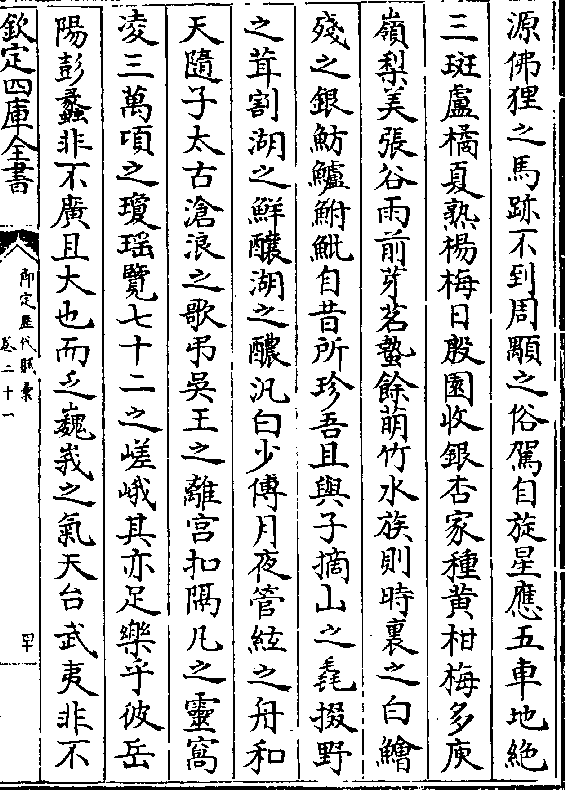 源佛狸之馬跡不到周顒之俗駕自旋星應五車地絶
三斑盧橘夏熟楊梅日殷園收銀杏家種黄柑梅多庾
嶺梨美張谷雨前芽茗蟄餘萌竹水族則時裏之白鱠
殘之銀魴鱸鮒魮自昔所珍吾且與子摘山之毳掇野
之茸割湖之鮮釀湖之醲汎白少傅月夜管絃之舟和
天隨子太古滄浪之歌弔吳王之離宫扣隔凡之靈窩
凌三萬頃之瓊瑶覽七十二之嵯峨其亦足樂乎彼岳
陽彭蠡非不廣且大也而乏巍峩之氣天台武夷非不
欽定四庫全書
御定歴代賦彚
卷二十一